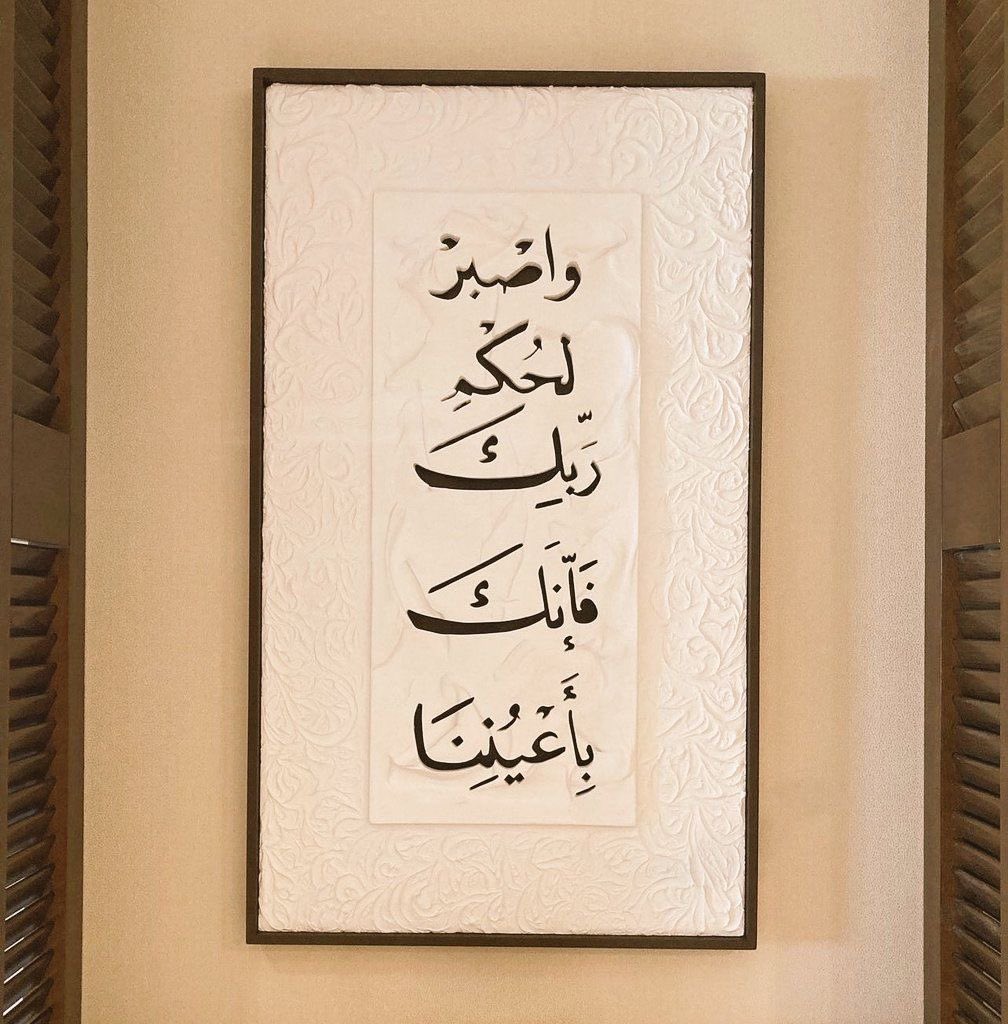 واصْبرْ
لحُكْمِ
رَّبِكَ
فَإّنَكَ
بِأَعْيُنِنَا